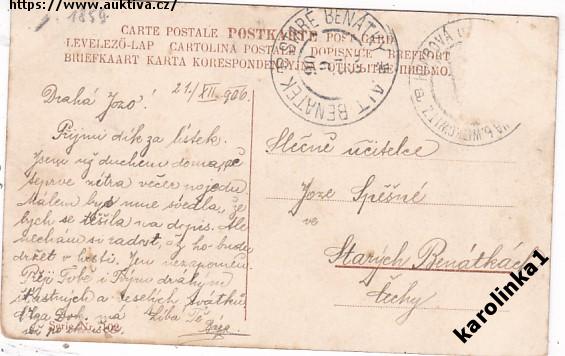 https://www.auktiva.cz/
1859
CARTE POSTALE POSTKARTE POST CARD
LEVELEZŐ-LAP CARTOLINA POSTALE DOPISNICE BREFKORT
BRIEFKAART KARTA KORESPONDENCYJNA
STARÉ BENÁTKY
ALT BENATEK
21./XII. 906.
Drahá Jozo!
Přijmi dík za lístek.
Jsem již duchem doma, že
teprve zítra večer pojedu
Málem bys mne svedla, že
bych se těšila na dopis. Ale
nechám si radost, až ho budu
držet v hrsti. Jen nezapomeň.
Přeji Tobě i Tvým drahým
šťastných a veselých svátků
Líbá Tě
Slečně učitelce
Joze Spěšné
ve
Starých Benátkách
Čechy
Serie Nr. 502
karolinka1